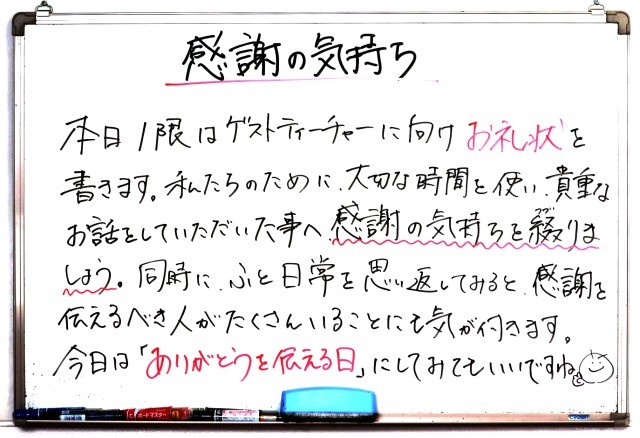 感謝の気持ち
本日1限はゲストティーチャーに向けお礼状を
書きます。私たちのために、大切な時間を使い、貴重な
お話をしていただいた事へ、感謝の気持ちを綴りま
しょう。同時に、ふと日常を思い返してみると、感謝を
伝えるべき人がたくさんいることにも気が付きます。
今日は「ありがとうを伝える日」にしてみてもいいですね。
ボードマスター